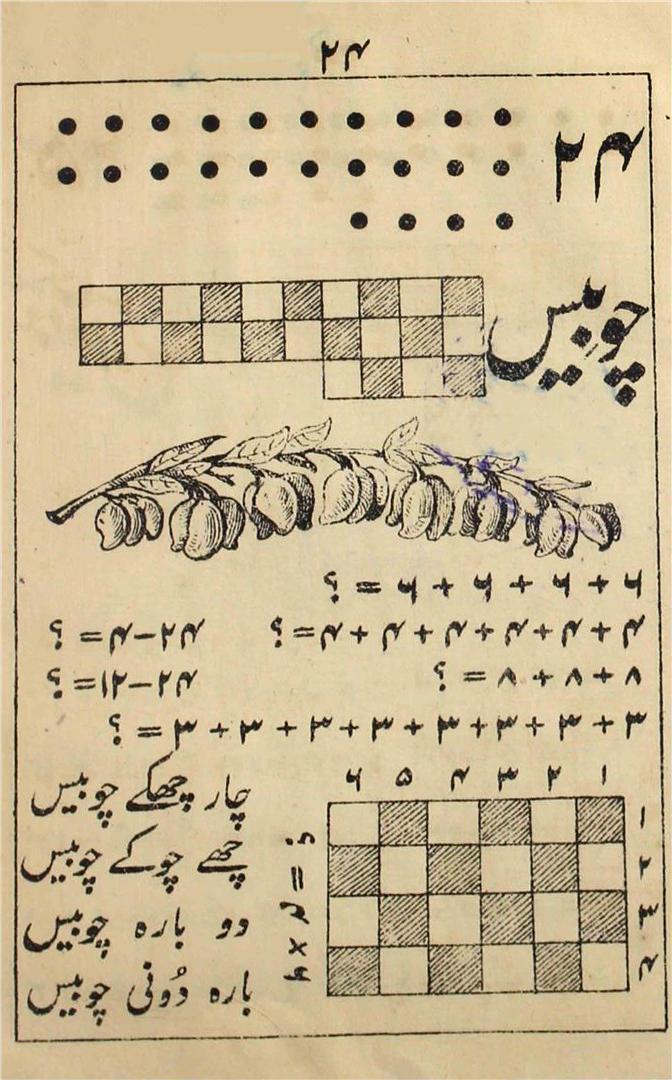 ۲۴
۲۴
چوبیس
۶ + ۶ + ۶ + ۶ = ؟
۴ + ۴ + ۴ + ۴ + ۴ + ۴ = ؟
۲۴ − ۴ = ؟
۸ + ۸ + ۸ = ؟
۲۴ − ۱۲ = ؟
۳ + ۳ + ۳ + ۳ + ۳ + ۳ + ۳ + ۳ = ؟
۱ ۲ ۳ ۴ ۵ ۶
۱
۲
۳
۴
۶ × ۴ = ؟
چار چھکے چوبیس
چھے چوکے چوبیس
دو بارہ چوبیس
بارہ دُونی چوبیس